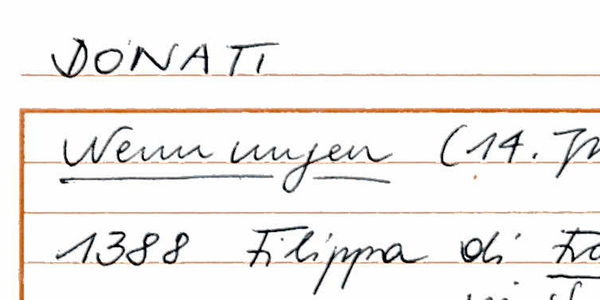 DONATI
Nennungen (14. J
1388 Filippa di